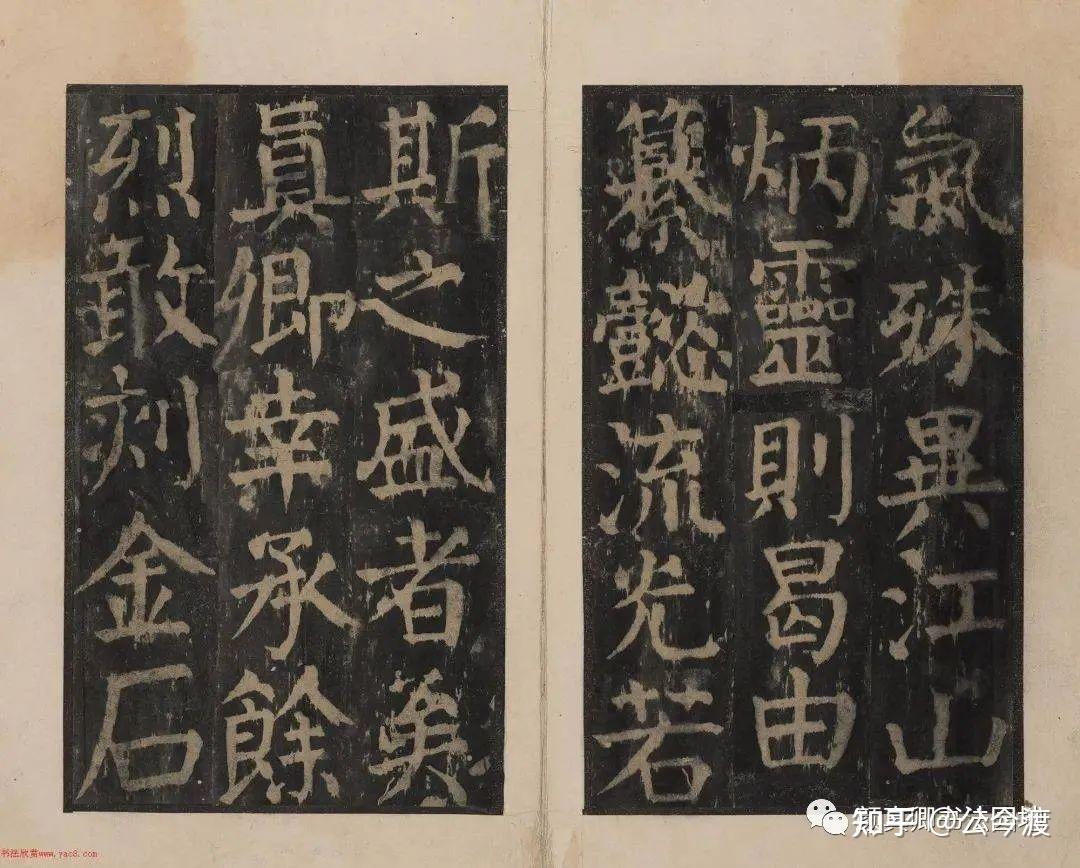 氣殊異江山
炳靈則曷由
纂懿流光若
斯之盛者矣
眞卿幸承餘
烈敢刻金石
知乎 @公今渡
书法欣赏www.yac8.com